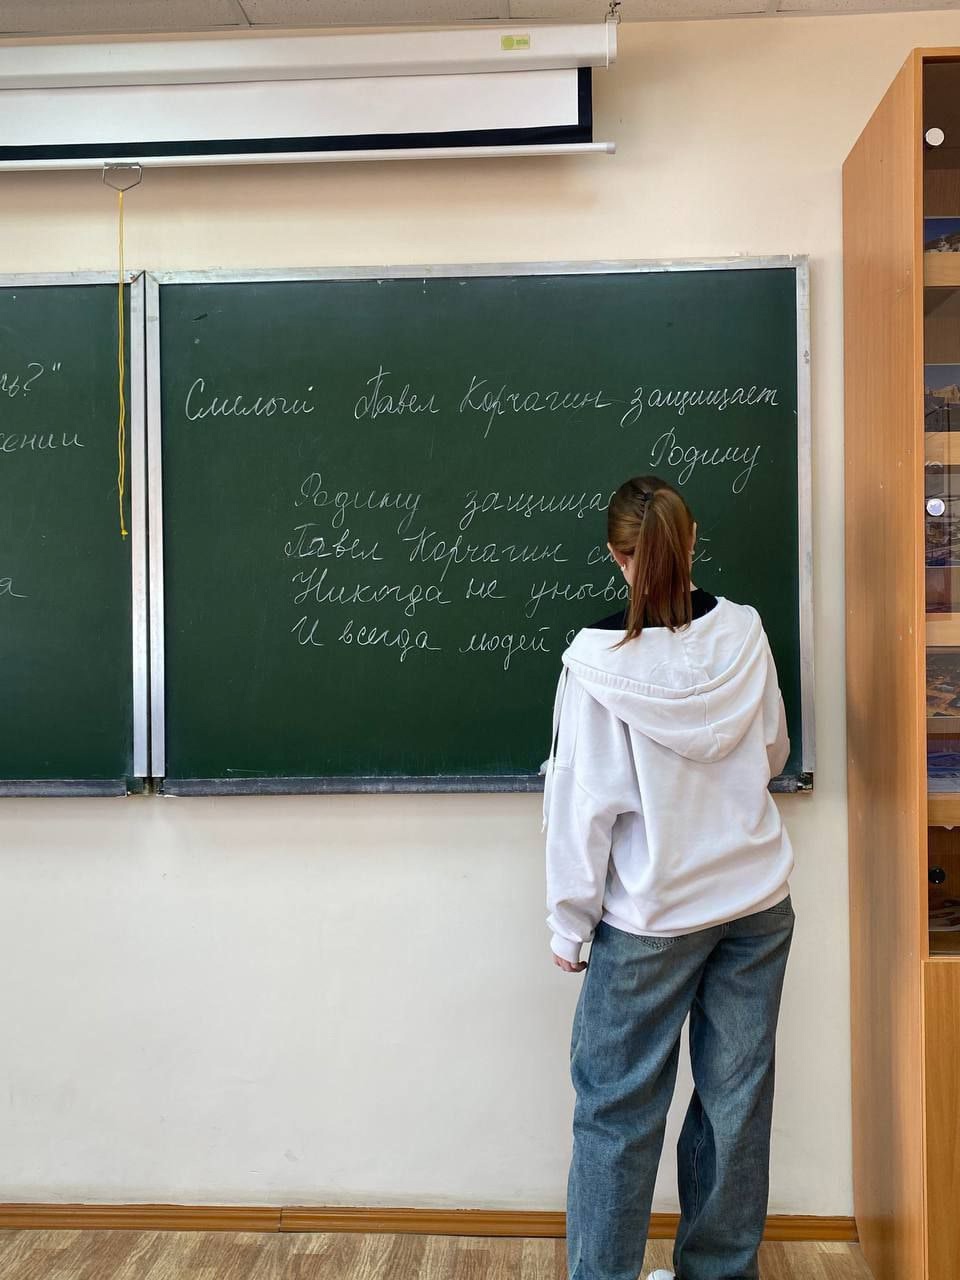 ть?"
сении
а
Смелый Павел Корчагин защищает
Родину
Родину защища
Павел Корчагин см й.
Никогда не уныва
И всегда людей